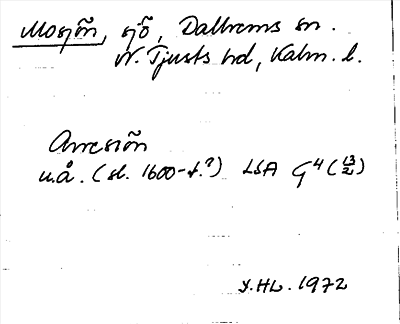 Mosjön, sjö, Dalhems sn.
N. Tjusts hd, Kalm. l.
u.å. (sl. 1600-t.?) LSA G4 (13/2)
HL. 1972